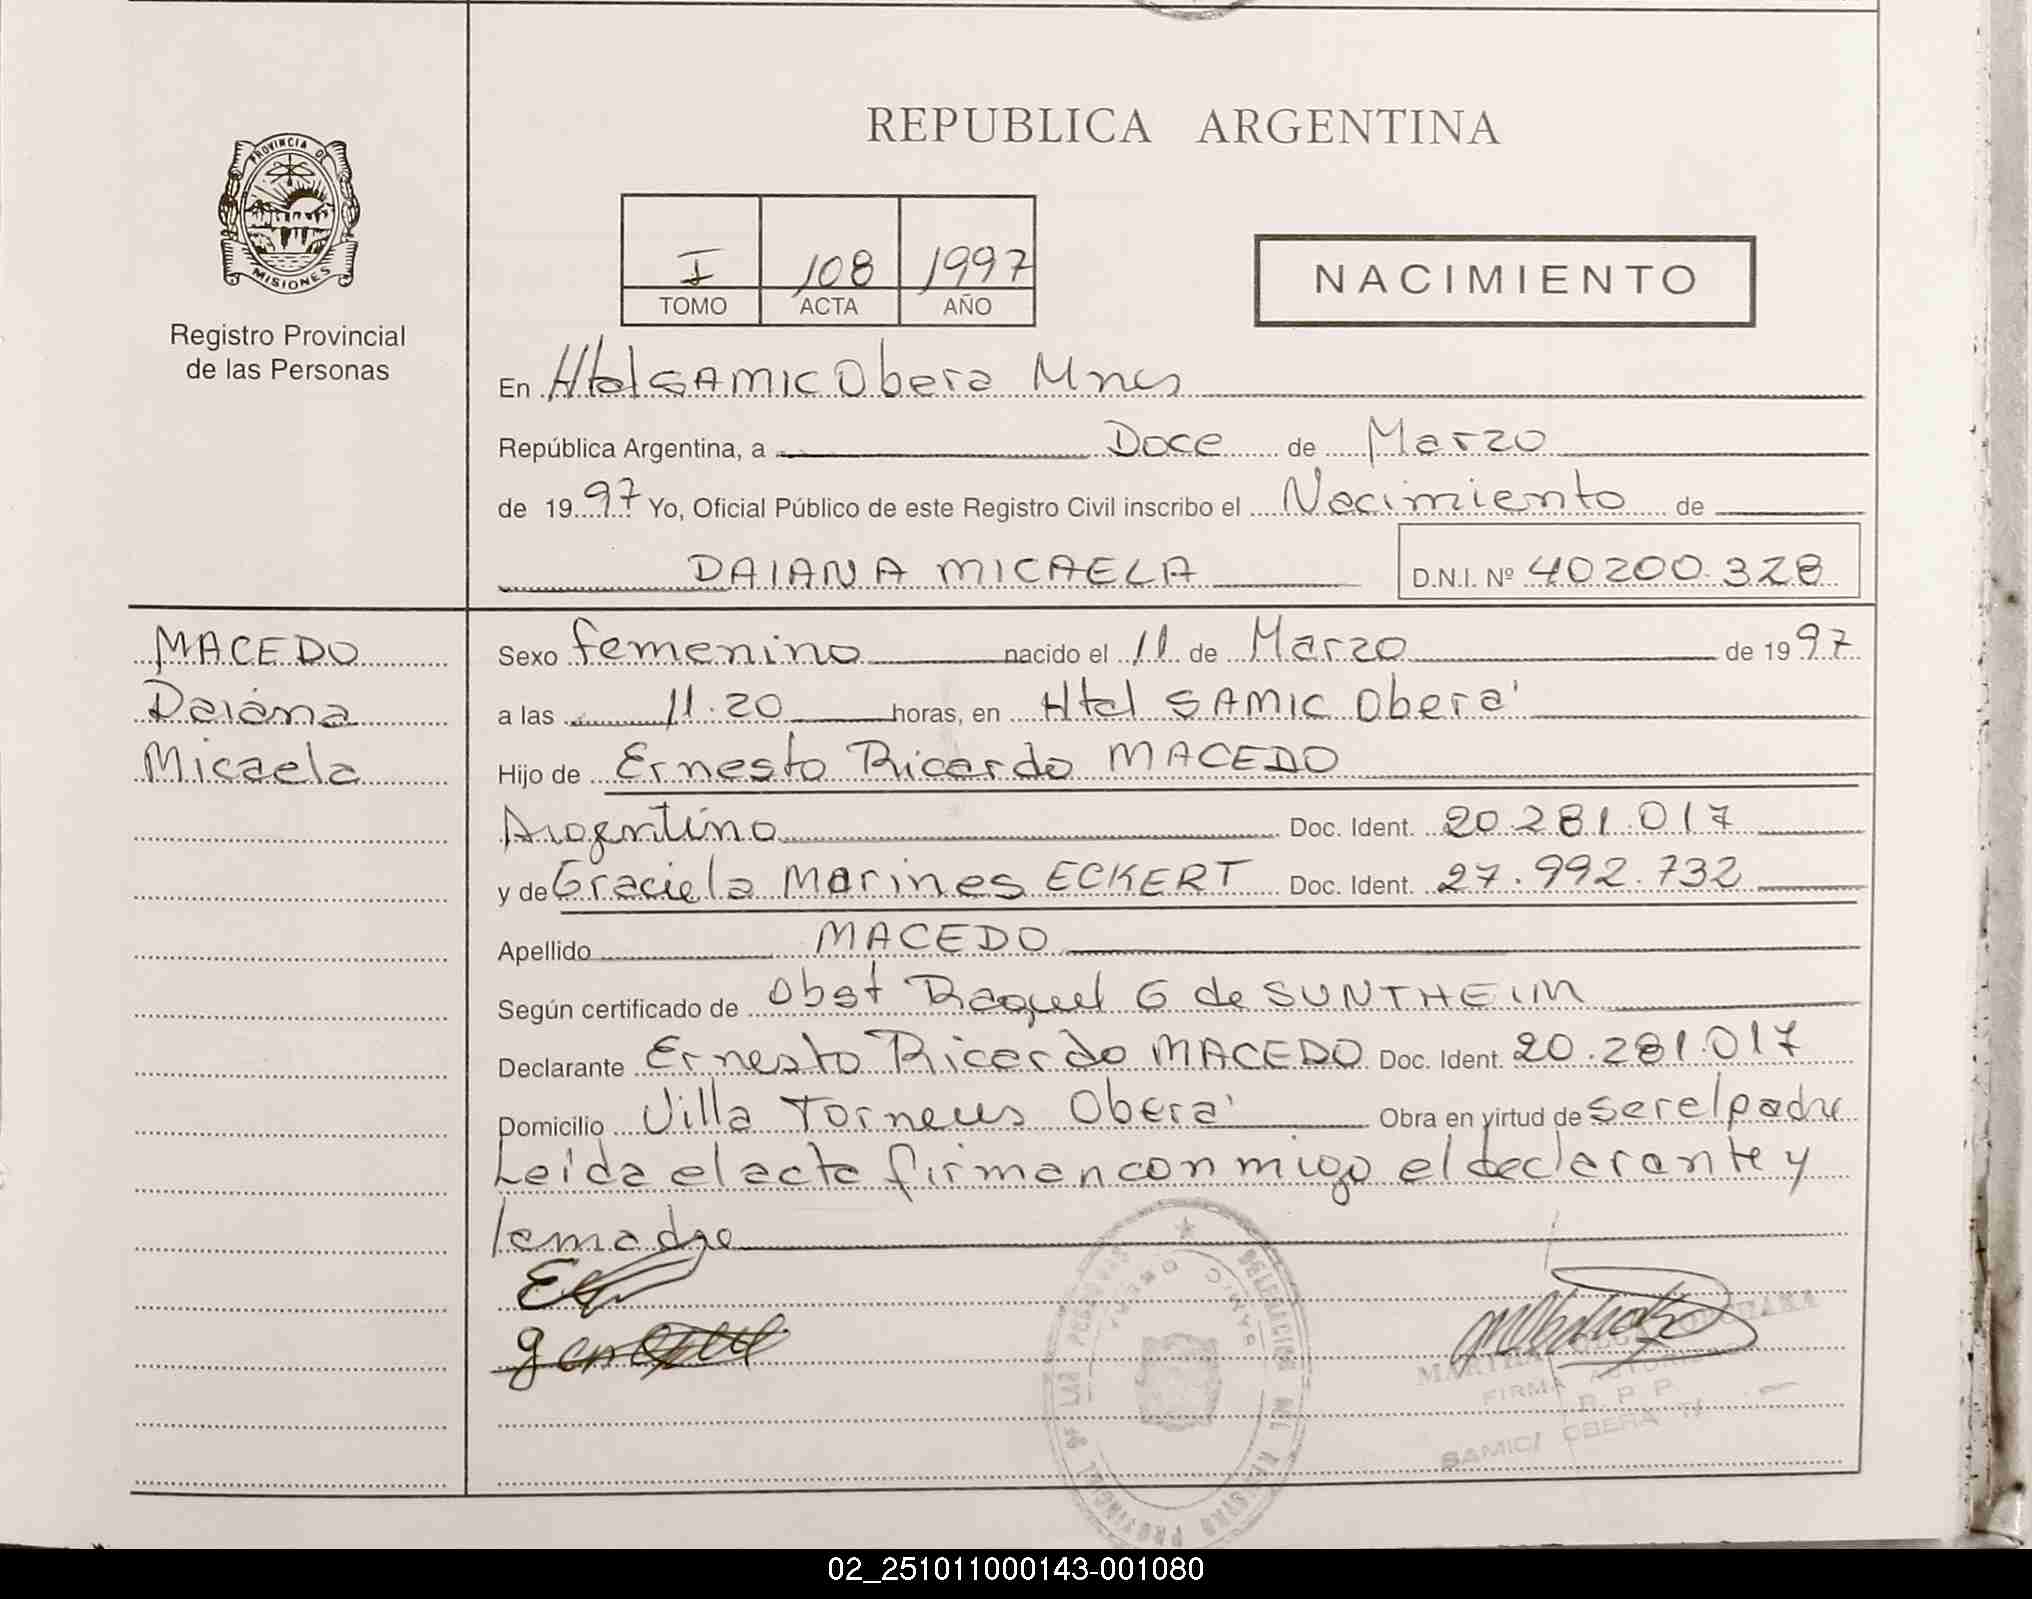 REPUBLICA ARGENTINA
PROVINCIA DE
MISIONES
Registro Provincial
de las Personas
I 108 1997
TOMO ACTA AÑO
NACIMIENTO
En Htal SAMIC Obera Mnes
República Argentina, a Doce de Marzo
de 1997 Yo, Oficial Público de este Registro Civil inscribo el Nacimiento de
DAIANA MICAELA D.N.I. Nº 40200.328
MACEDO
Daiana
Micaela
Sexo femenino nacido el 11 de Marzo de 1997
a las 11.20 horas, en Htal SAMIC Obera'
Hijo de Ernesto Ricardo MACEDO
Argentino Doc. Ident. 20.281.017
y de Graciela Marines ECKERT Doc. Ident. 27.992.732
Apellido MACEDO
Según certificado de Obst Raquel G de SUNTHEIM
Declarante Ernesto Ricardo MACEDO Doc. Ident. 20.281.017
Domicilio Villa Torneus Obera' Obra en virtud de ser el padre
Leida el acta firman conmigo el declarante y
la madre
DELEGACION DEL REGISTRO PROVINCIAL DE LAS PERSONAS
SAMIC OBERA
MARTHA
FIRMA
R. P. P.
SAMIC/ OBERA
02_251011000143-001080